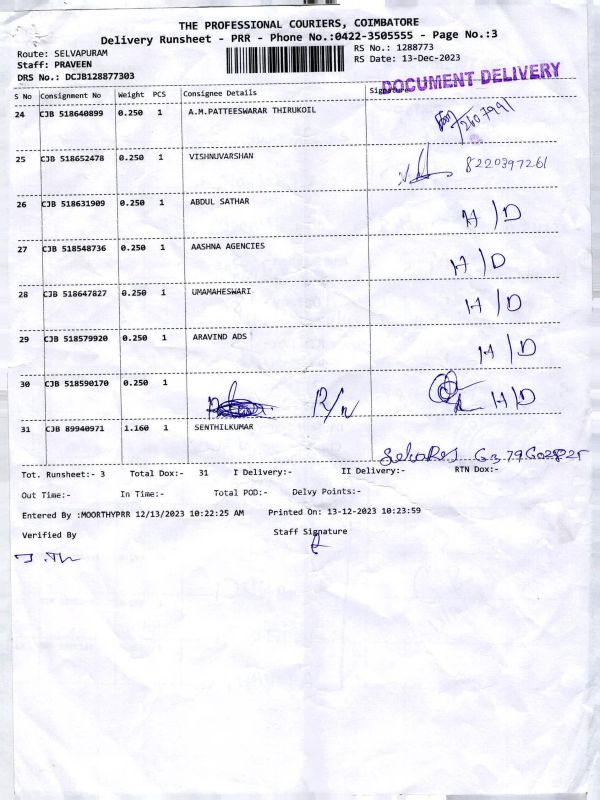 THE PROFESSIONAL COURIERS, COIMBATORE
Delivery Runsheet - PRR - Phone No.:0422-3505555 - Page No.:3
Route: SELVAPURAM
RS No.: 1288773
Staff: PRAVEEN
RS Date: 13-Dec-2023
DRS No.: DCJB128877303
DOCUMENT DELIVERY
S No Consignment No Weight PCS Consignee Details Signature
24 CJB 518640899 0.250 1 A.M.PATTEESWARAR THIRUKOIL
25 CJB 518652478 0.250 1 VISHNUVARSHAN 8220397261
26 CJB 518631909 0.250 1 ABDUL SATHAR H/D
27 CJB 518548736 0.250 1 AASHNA AGENCIES H/D
28 CJB 518647827 0.250 1 UMAMAHESWARI H/D
29 CJB 518579920 0.250 1 ARAVIND ADS H/D
30 CJB 518590170 0.250 1 R/N H/D
31 CJB 89940971 1.160 1 SENTHILKUMAR
Tot. Runsheet:- 3 Total Dox:- 31 I Delivery:- II Delivery:- RTN Dox:-
Out Time:- In Time:- Total POD:- Delvy Points:-
Entered By :MOORTHYPRR 12/13/2023 10:22:25 AM Printed On: 13-12-2023 10:23:59
Verified By Staff Signature